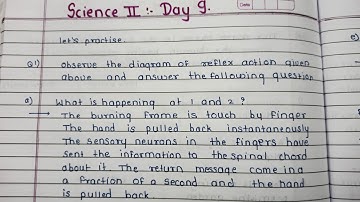 Science II :- Day 9.
Date
let's practise.
Q1) observe the diagram of reflex action given
above and answer the following question
a) What is happening at 1 and 2 ?
→ The burning frame is touch by finger
The hand is pulled back instantaneously
The sensory neurons in the fingers have
sent the information to the spinal chord
about it. The return message come in a
fraction of a second and the hand
is pulled back.